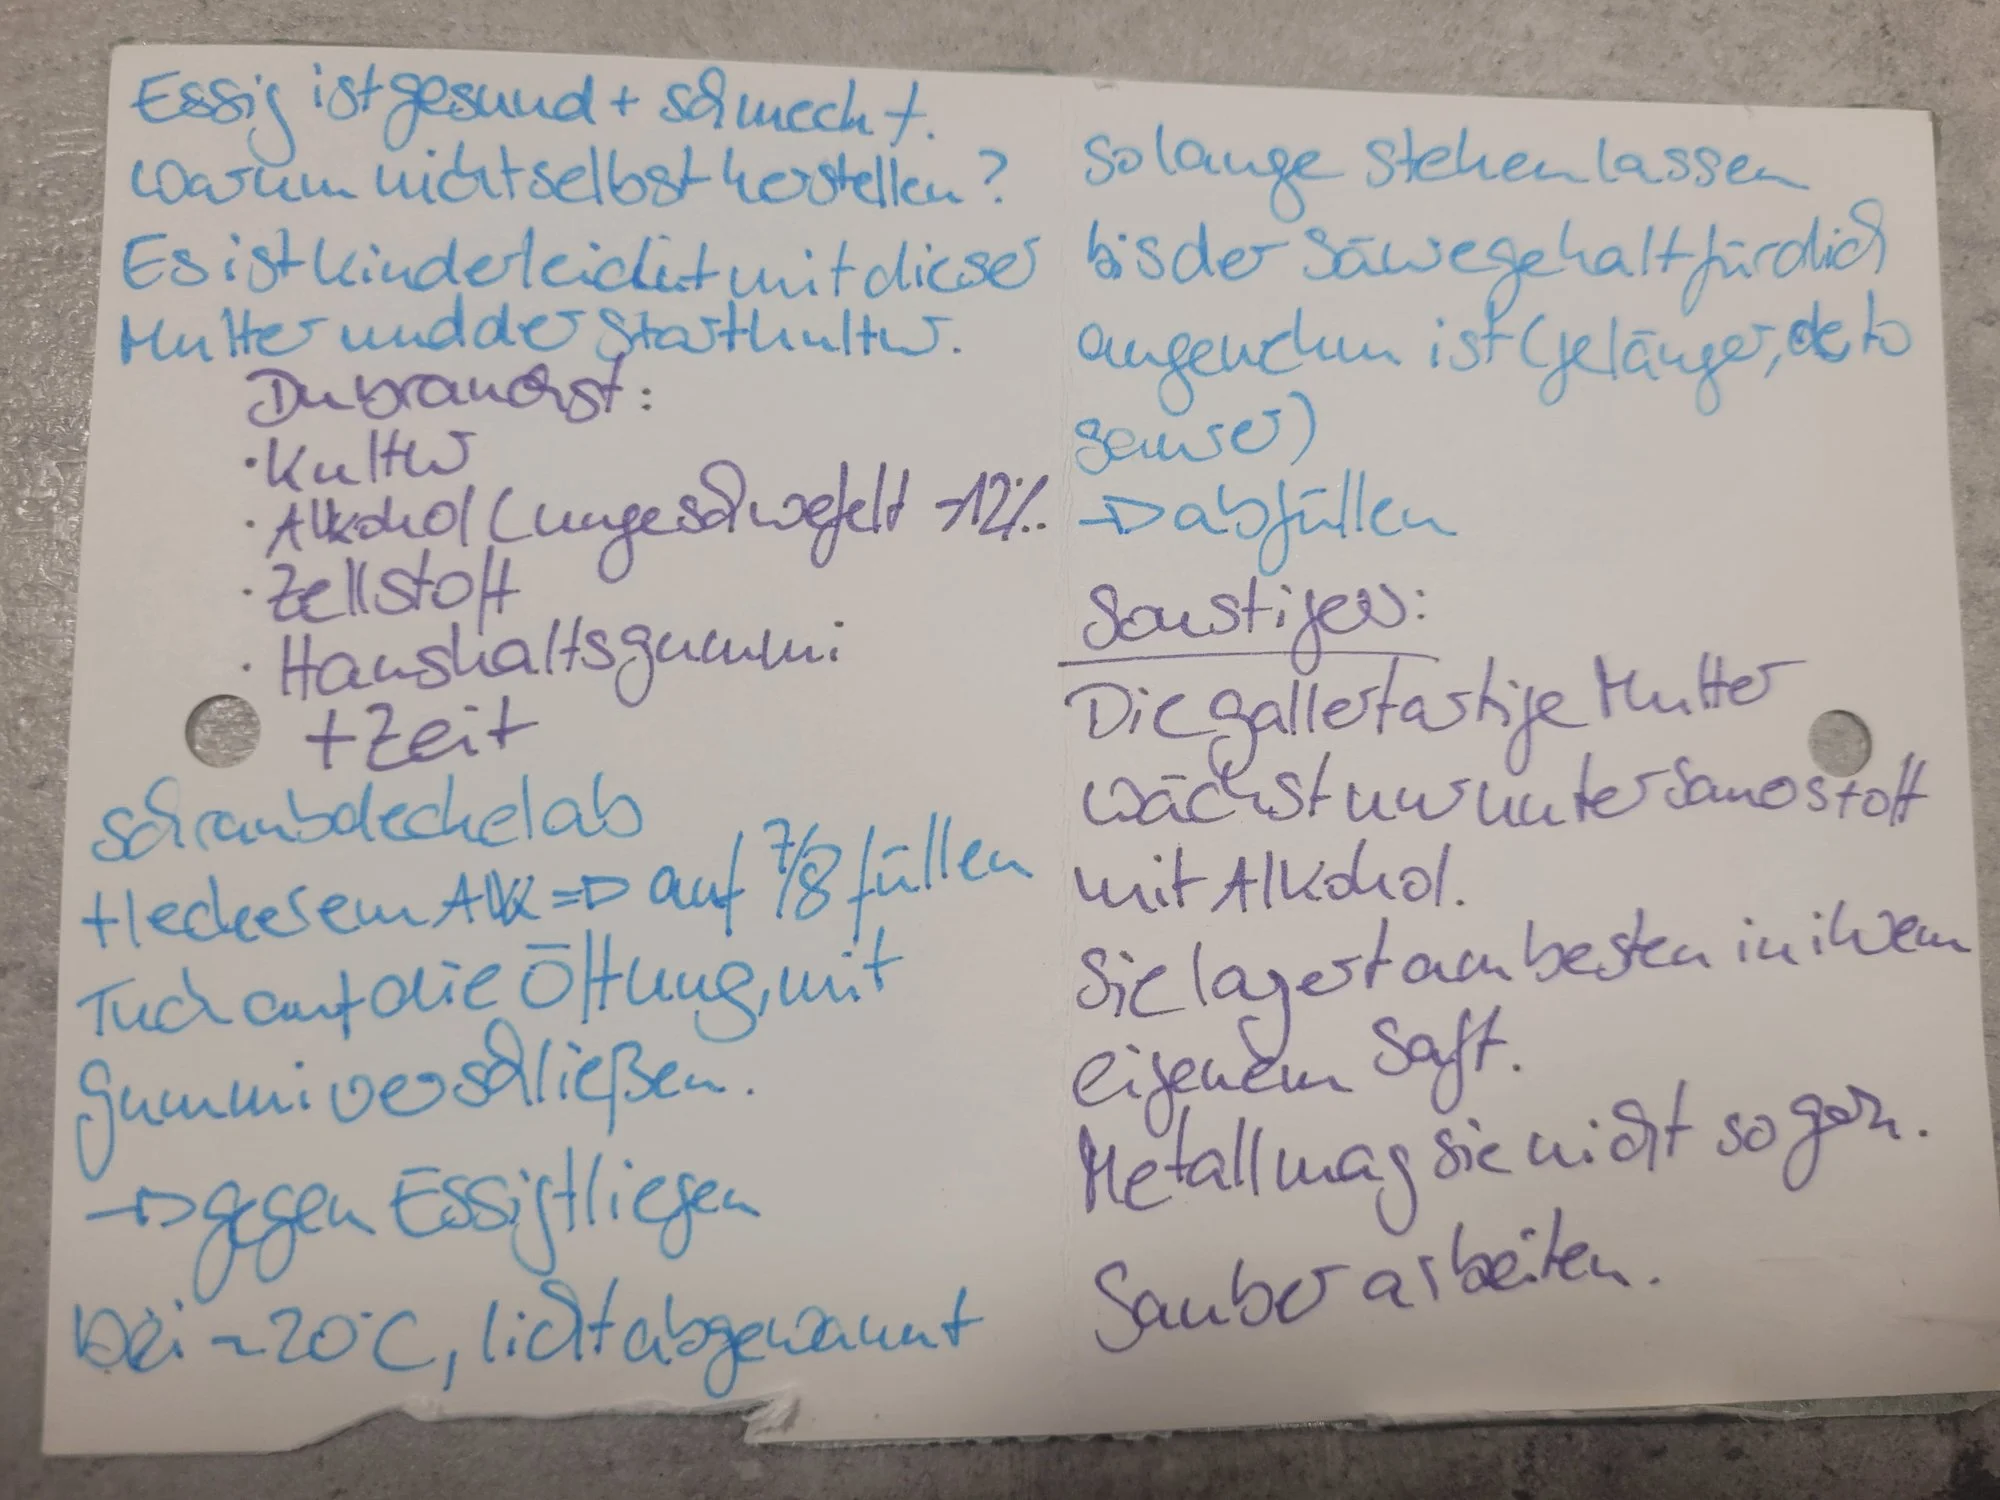 Essig ist gesund + schmeckt.
Warum nicht selbst herstellen?
Es ist kinderleicht mit dieser
Mutter und der Startkultur.
Du brauchst:
· Kultur
· Alkohol (ungeschwefelt ~12%.
· Zellstoff
· Haushaltsgummi
+ Zeit
Schraubdeckel ab
+ leckerem Alk => auf 7/8 füllen
Tuch auf die Öffnung, mit
Gummi verschließen.
-> gegen Essigfliegen
bei ~20°C, lichtabgewannt
so lange stehen lassen
bis der Säuregehalt für dich
angenehm ist (je länger, desto
saurer)
-> abfüllen
Sonstiges:
Die gallertartige Mutter
wächst nur unter Sauerstoff
mit Alkohol.
Sie lagert am besten in ihrem
eigenem Saft.
Metall mag sie nicht so gern.
Sauber arbeiten.